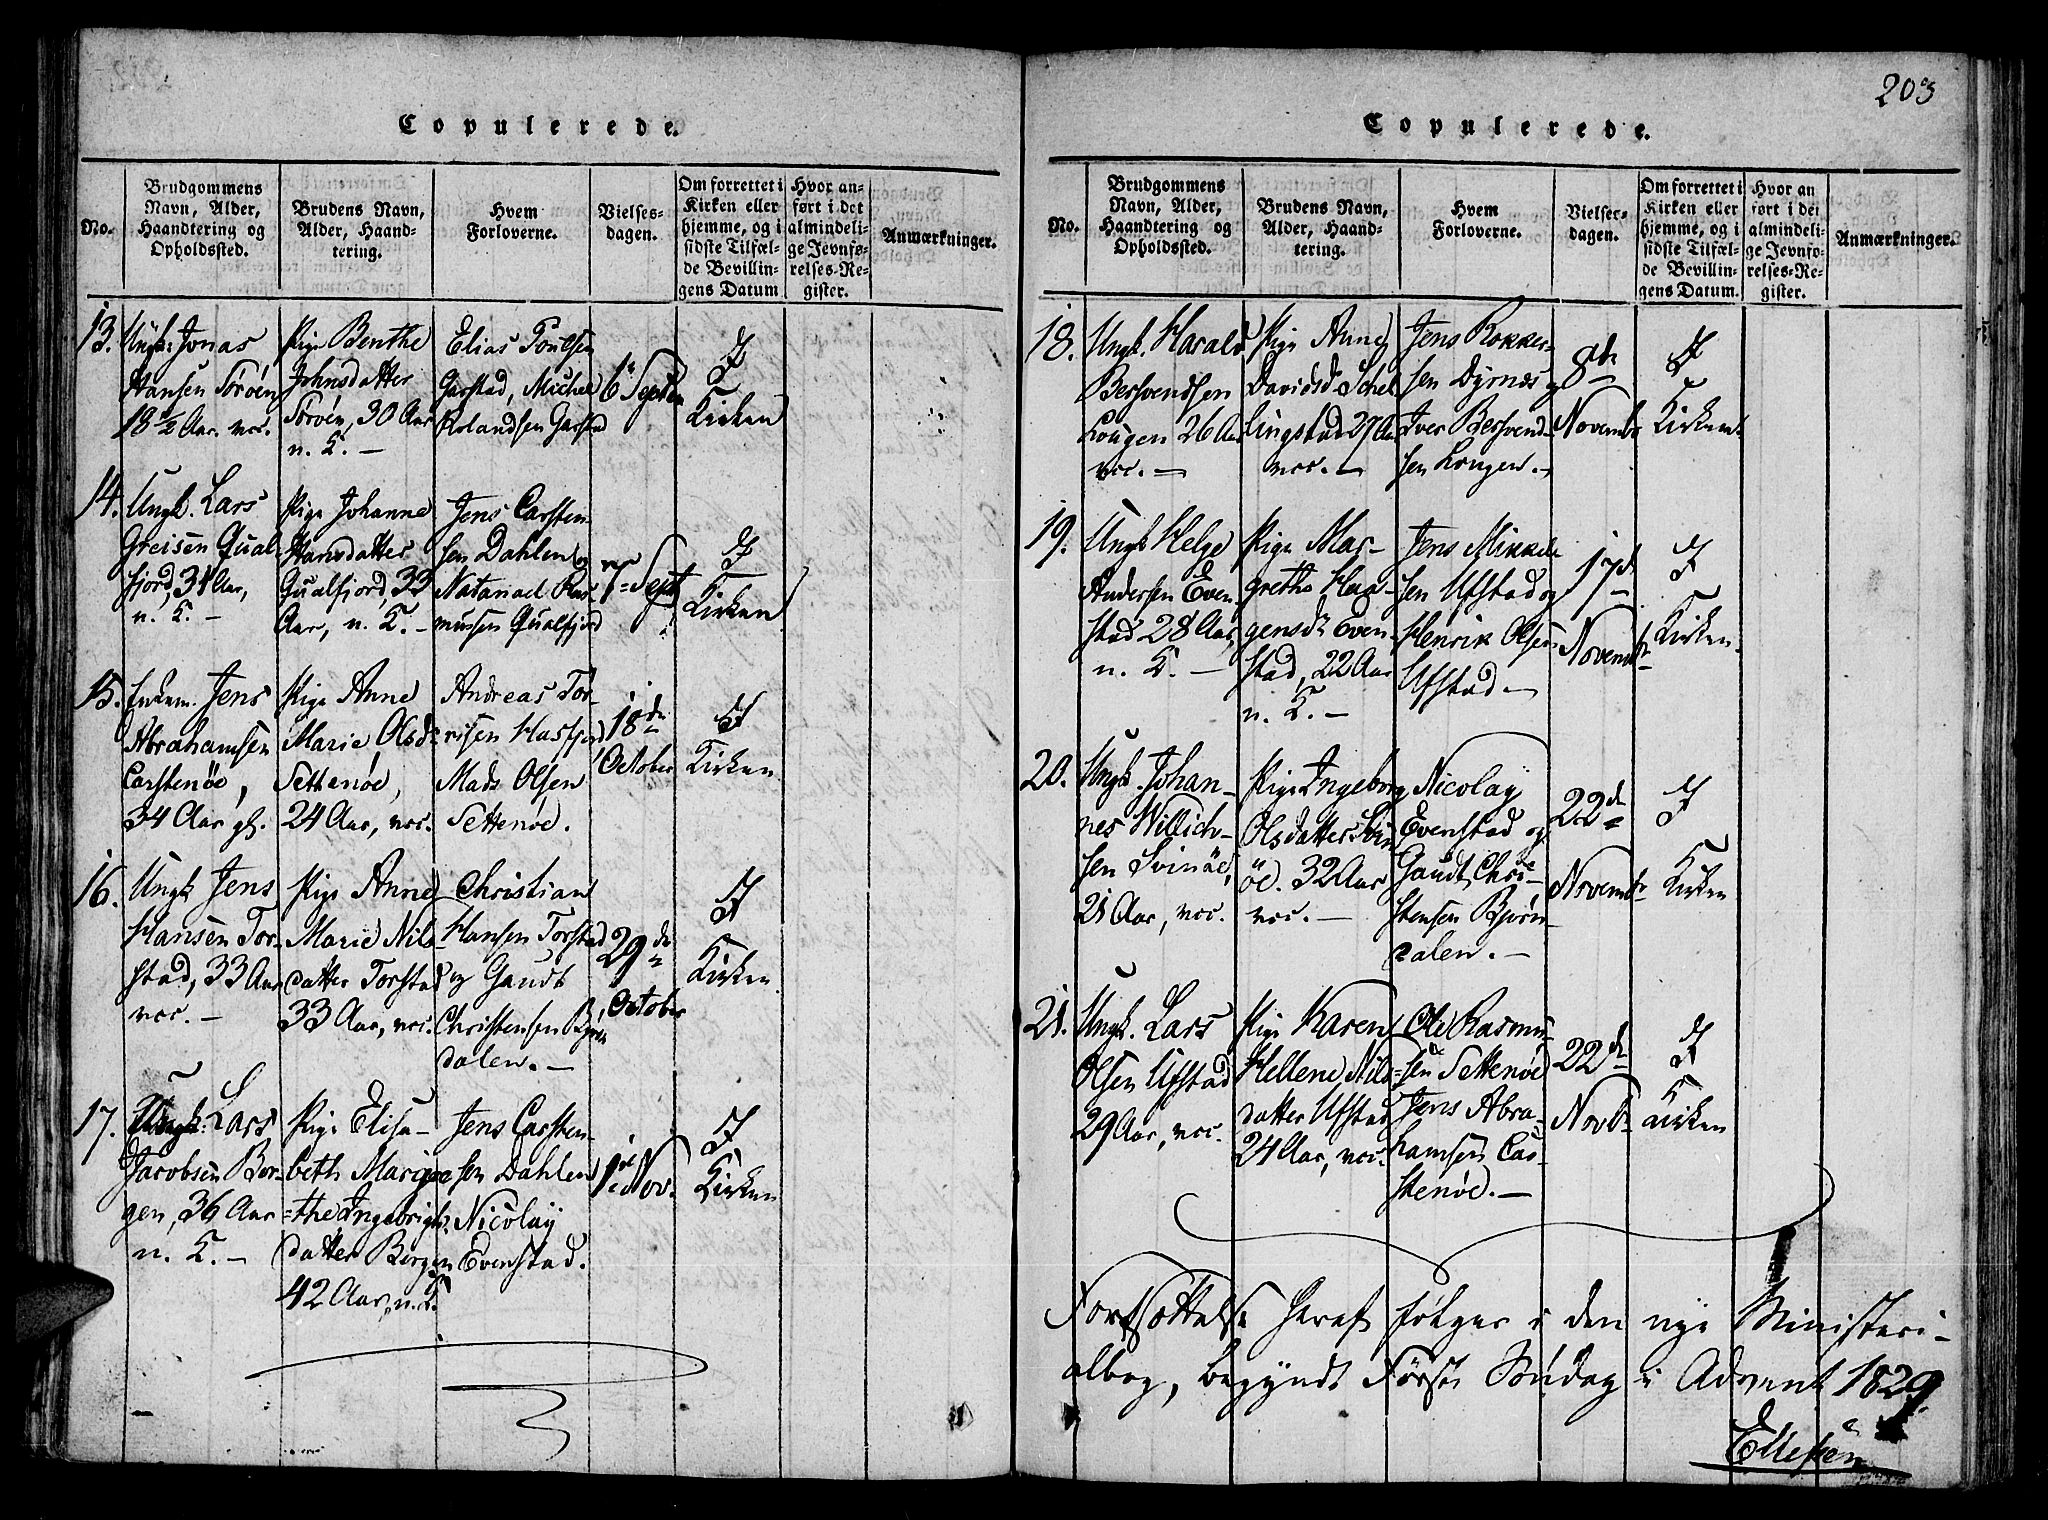 Copulerede.
No.
Brudgommens Navn, Alder, Haandtering og Opholdssted.
Brudens Navn, Alder, Haandtering.
Hvem Forloverne.
Vielsesdagen.
Om forrettet i Kirken eller hjemme, og i sidste Tilfælde Bevillingens Datum
Hvor anført i det almindelige Jevnførelses-Register.
Anmærkninger.
13.
Ungk. Jonas
Hansen Sørøen
18 1/2 Aar. vac.
Pige Benthe
Johnsdatter
Sørøen, 30 Aar
n. K. —
Elias Poulsen
Garstad, Michel
Rolandsen Garstad
6te Septbr
I
Kirken
14.
Ungk. Lars
Greisen Qual-
fjord, 31 Aar,
n. K. —
Pige Johanne
Hansdatter
Qualfjord, 33
Aar, n. K. —
Jens Carsten-
sen Dahlen og
Natanael Ras-
mussen Qualfjord
Sept
I
Kirken
15.
Enkem. Jens
Abrahamsen
Carstenöe,
34 Aar gl.
Pige Anne
Marie Olsd.
Settenöe,
24 Aar, vac.
Andreas Tor-
risen Hasfjord
Mads Olsen
Settenöe.
18de
October
I
Kirken
16.
Ungk. Jens
Hansen Tor-
stad, 33 Aar
vac. —
Pige Anne
Marie Nils-
datter Torstad
33 Aar, vac.
Christian
Hansen Torstad
og Gaudt
Christensen Björn
dalen. —
29de
October
I
Kirken
17.
Ungk. Lars
Jacobsen Bor-
gen, 36 Aar
n. K. —
Pige Elisa-
beth Margre
=the Ingebrigts
datter Borgen
42 Aar, n. K.
Jens Carsten-
sen Dahlen
Nicolay
Evenstad.
1ste Nov.
I
Kirken
203
Copulerede.
No.
Brudgommens Navn, Alder, Haandtering og Opholdssted.
Brudens Navn, Alder, Haandtering.
Hvem Forloverne.
Vielsesdagen.
Om forrettet i Kirken eller hjemme, og i sidste Tilfælde Bevillingens Datum.
Hvor anført i det almindelige Jevnførelses-Register.
Anmærkninger.
18.
Ungk. Harald
Bersvendsen
Lougen 26 Aar
vac. —
Pige Anne
Davidsd. Schel
lingstad 29 Aar
vac. —
Jens Rokker-
sen Dyrnæs og
Iver Bersvend-
sen Lougen. —
8de
Novembr
I
Kirken.
19.
Ungk Helge
Andersen Even
stad 28 Aar,
n. K. —
Pige Mar-
grethe Haa-
gensdr. Even-
stad, 22 Aar
n. K. —
Jens Mikkel
sen Ufstad og
Henrik Olsen
Ufstad —
17de
Novembr
I
Kirken.
20.
Ungk. Johan-
nes Willich-
sen Svinöe,
21 Aar, vac.
Pige Ingeborg
Olsdatter Svin
öe. 32 Aar
vac. —
Nicolay
Evenstad og
Gaudt Chri-
stensen Björn-
dalen. —
22de
Novembr
I
Kirken
21.
Ungk. Lars
Olsen Ufstad
29 Aar, vac.
Pige Karen
Hellene Nils-
datter Ufstad
24 Aar, vac.
Ole Rasmu-
sen Settenöe
Jens Abra-
hamsen Car-
stenöe. —
22de
Novbr
I
Kirken
Fortsættelse heraf følger i den nye Ministeri-
albog, begyndt Første Söndag i Advent 1829.
Ellefsen